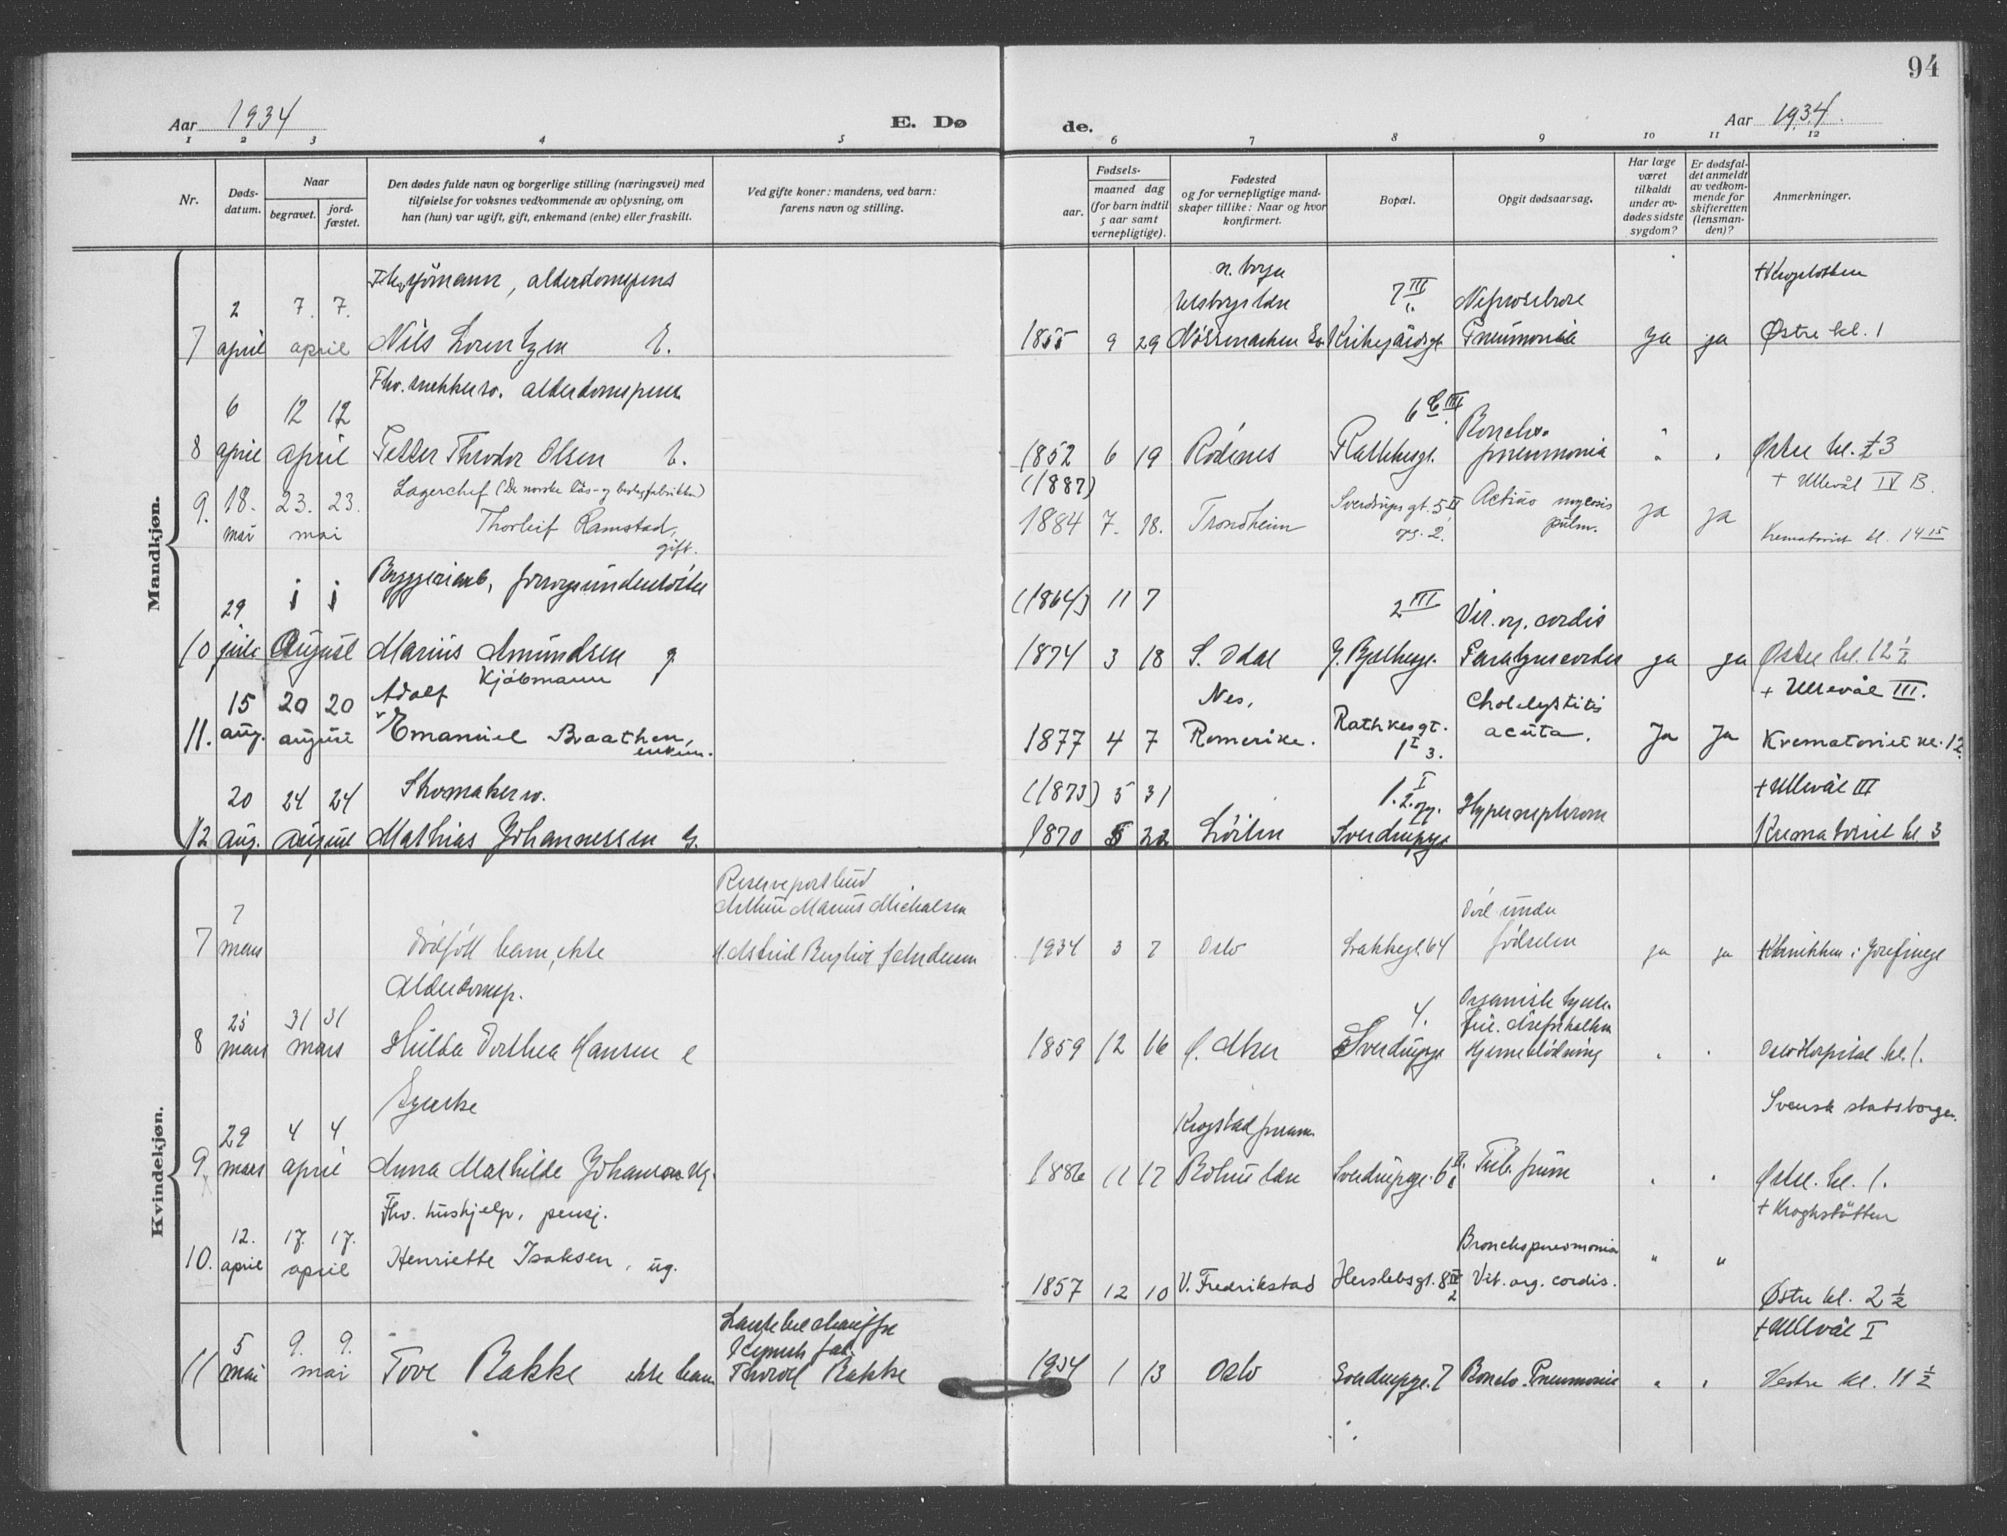 94
Aar 1934
E. Dø
de.
Aar 1934.
1 2 3 4 5 6 7 8 9 10 11 12
Nr.
Døds-
datum.
Naar
begravet.
jord-
fæstet.
Den dødes fulde navn og borgerlige stilling (næringsvei) med
tilføielse for voksnes vedkommende av oplysning, om
han (hun) var ugift, gift, enkemand (enke) eller fraskilt.
Ved gifte koner: mandens, ved barn:
farens navn og stilling.
Fødsels-
aar.
maaned dag
(for barn indtil
5 aar samt
vernepligtige).
Fødested
og for vernepligtige mand-
skaper tillike: Naar og hvor
konfirmert.
Bopæl.
Opgit dødsaarsag.
Har læge
været
tilkaldt
under av-
dødes sidste
sygdom?
Er dødsfal-
det anmeldt
av vedkom-
mende for
skifteretten
(lensman-
den)?
Anmerkninger.
Mandkjøn.
sjömann, alderdomspens
2 7. 7.
7 april april Nils Lorentzen E.
1855 9 29
7 III Kirkegårdsgt.
Pneumonia ja ja Østre kl. 1
Fhv. snekkersv. alderdomspens
6 12 12
8 april april Petter Theodor Olsen E.
1852 6 19 Rödenes
6 III Rathkesgt.
Broncho-
pneumonia " " Østre kl. ½ 3
Lagerchef (De norske lås- og beslagfabrikker)
9. 18. 23. 23.
mai mai Thorleif Ramstad,
gift.
(1887)
1884 7. 18. Trondheim
Sverdrupsgt. 5 II
og. 2.
Actinomycosis
pulm. ja ja
+ Ullevål IV B.
Krematoriet kl. 14 15
Bryggeriarb, forsorgsunderstöttet
29 1 1
10 juli August Marius Amundsen g.
(1864) 11 7
1874 3 18 S. Odal
2 III
Vit. org. cordis
Paralysis cordis ja ja Østre kl. 12 ½
Kjöbmann
15 20 20 Adolf
11. aug. august Emanuel Braathen,
enkem.
1877 4 7 Nes,
Romerike.
Rathkesgt.
1 I 3.
Cholecystitis
acuta. Ja Ja
+ Ullevål III.
Krematoriet kl. 12
20 24 24 Skomakersv.
12 aug. August Mathias Johannessen g.
(1873) 5 31
1870 5 22 Löiten
1. I 2. og.
Sverdrupsgt
Hypernephrom
+ Ullevål III
Krematoriet kl. 3
Kvindekjøn.
7
7 mars Dödfött barn, ekte
Reservepostbud
Arthur Marius Michalsen
1934 3 7 Oslo
Död under
födselen ja ja
Klinikken i Josefinegt
Alderdomsp.
25 31 31
8 mars mars Hulda Dorthea Hansen e
1859 12 16 Aker
4.
Sverdrupsgt
Hjerneblödning " "
Oslo Hospital kl. 1.
Syerske
29 4 4
9 mars april Anna Mathilde Johansson ug.
1886 11 17
Krogstad
Bohuslän
Sverdrupsgt. 6
Tub. pulm " "
Svensk statsborger.
Østre. kl. 1.
Fhv. hushjelp, pensj.
12. 17. 17.
10. april april Henriette Isaksen, ug.
1857 12 10 V. Fredrikstad
Herslebsgt. 8 II 2
Bronchopneumonia
Vit. org. cordis. " "
+ Kroghstötten
Østre kl. 2 ½
5 9. 9.
11 mai mai Tove Bakke ekte barn
Lastebilchauffør
Thorolf Bakke
1934 1 13 Oslo
Sverdrupsgt. 7
Broncho-Pneumonie " "
+ Ullevål I
Vestre kl. 11 ½